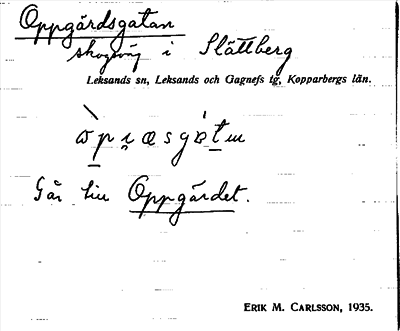 Oppgårdsgatan
skogsväg i Slättberg
Leksands sn, Leksands och Gagnefs tg, Kopparbergs län.
Går till Oppgårdet.
ERIK M. CARLSSON, 1935.